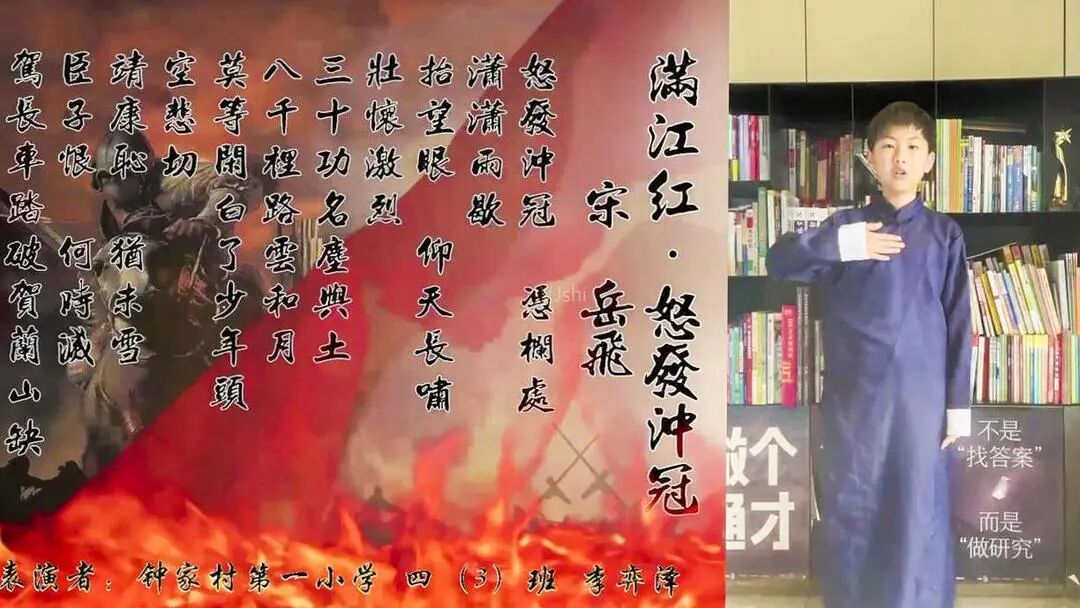 滿江紅·怒發沖冠
宋 岳飛
怒發沖冠 憑欄處
瀟瀟雨歇
抬望眼 仰天長嘯
壯懷激烈
三十功名塵與土
八千裡路雲和月
莫等閑白了少年頭
空悲切
靖康恥 猶未雪
臣子恨 何時滅
駕長車踏破賀蘭山缺
表演者：钟家村第一小学 四（3）班 李弈泽
做个
通才
不是
“找答案”
而是
“做研究”